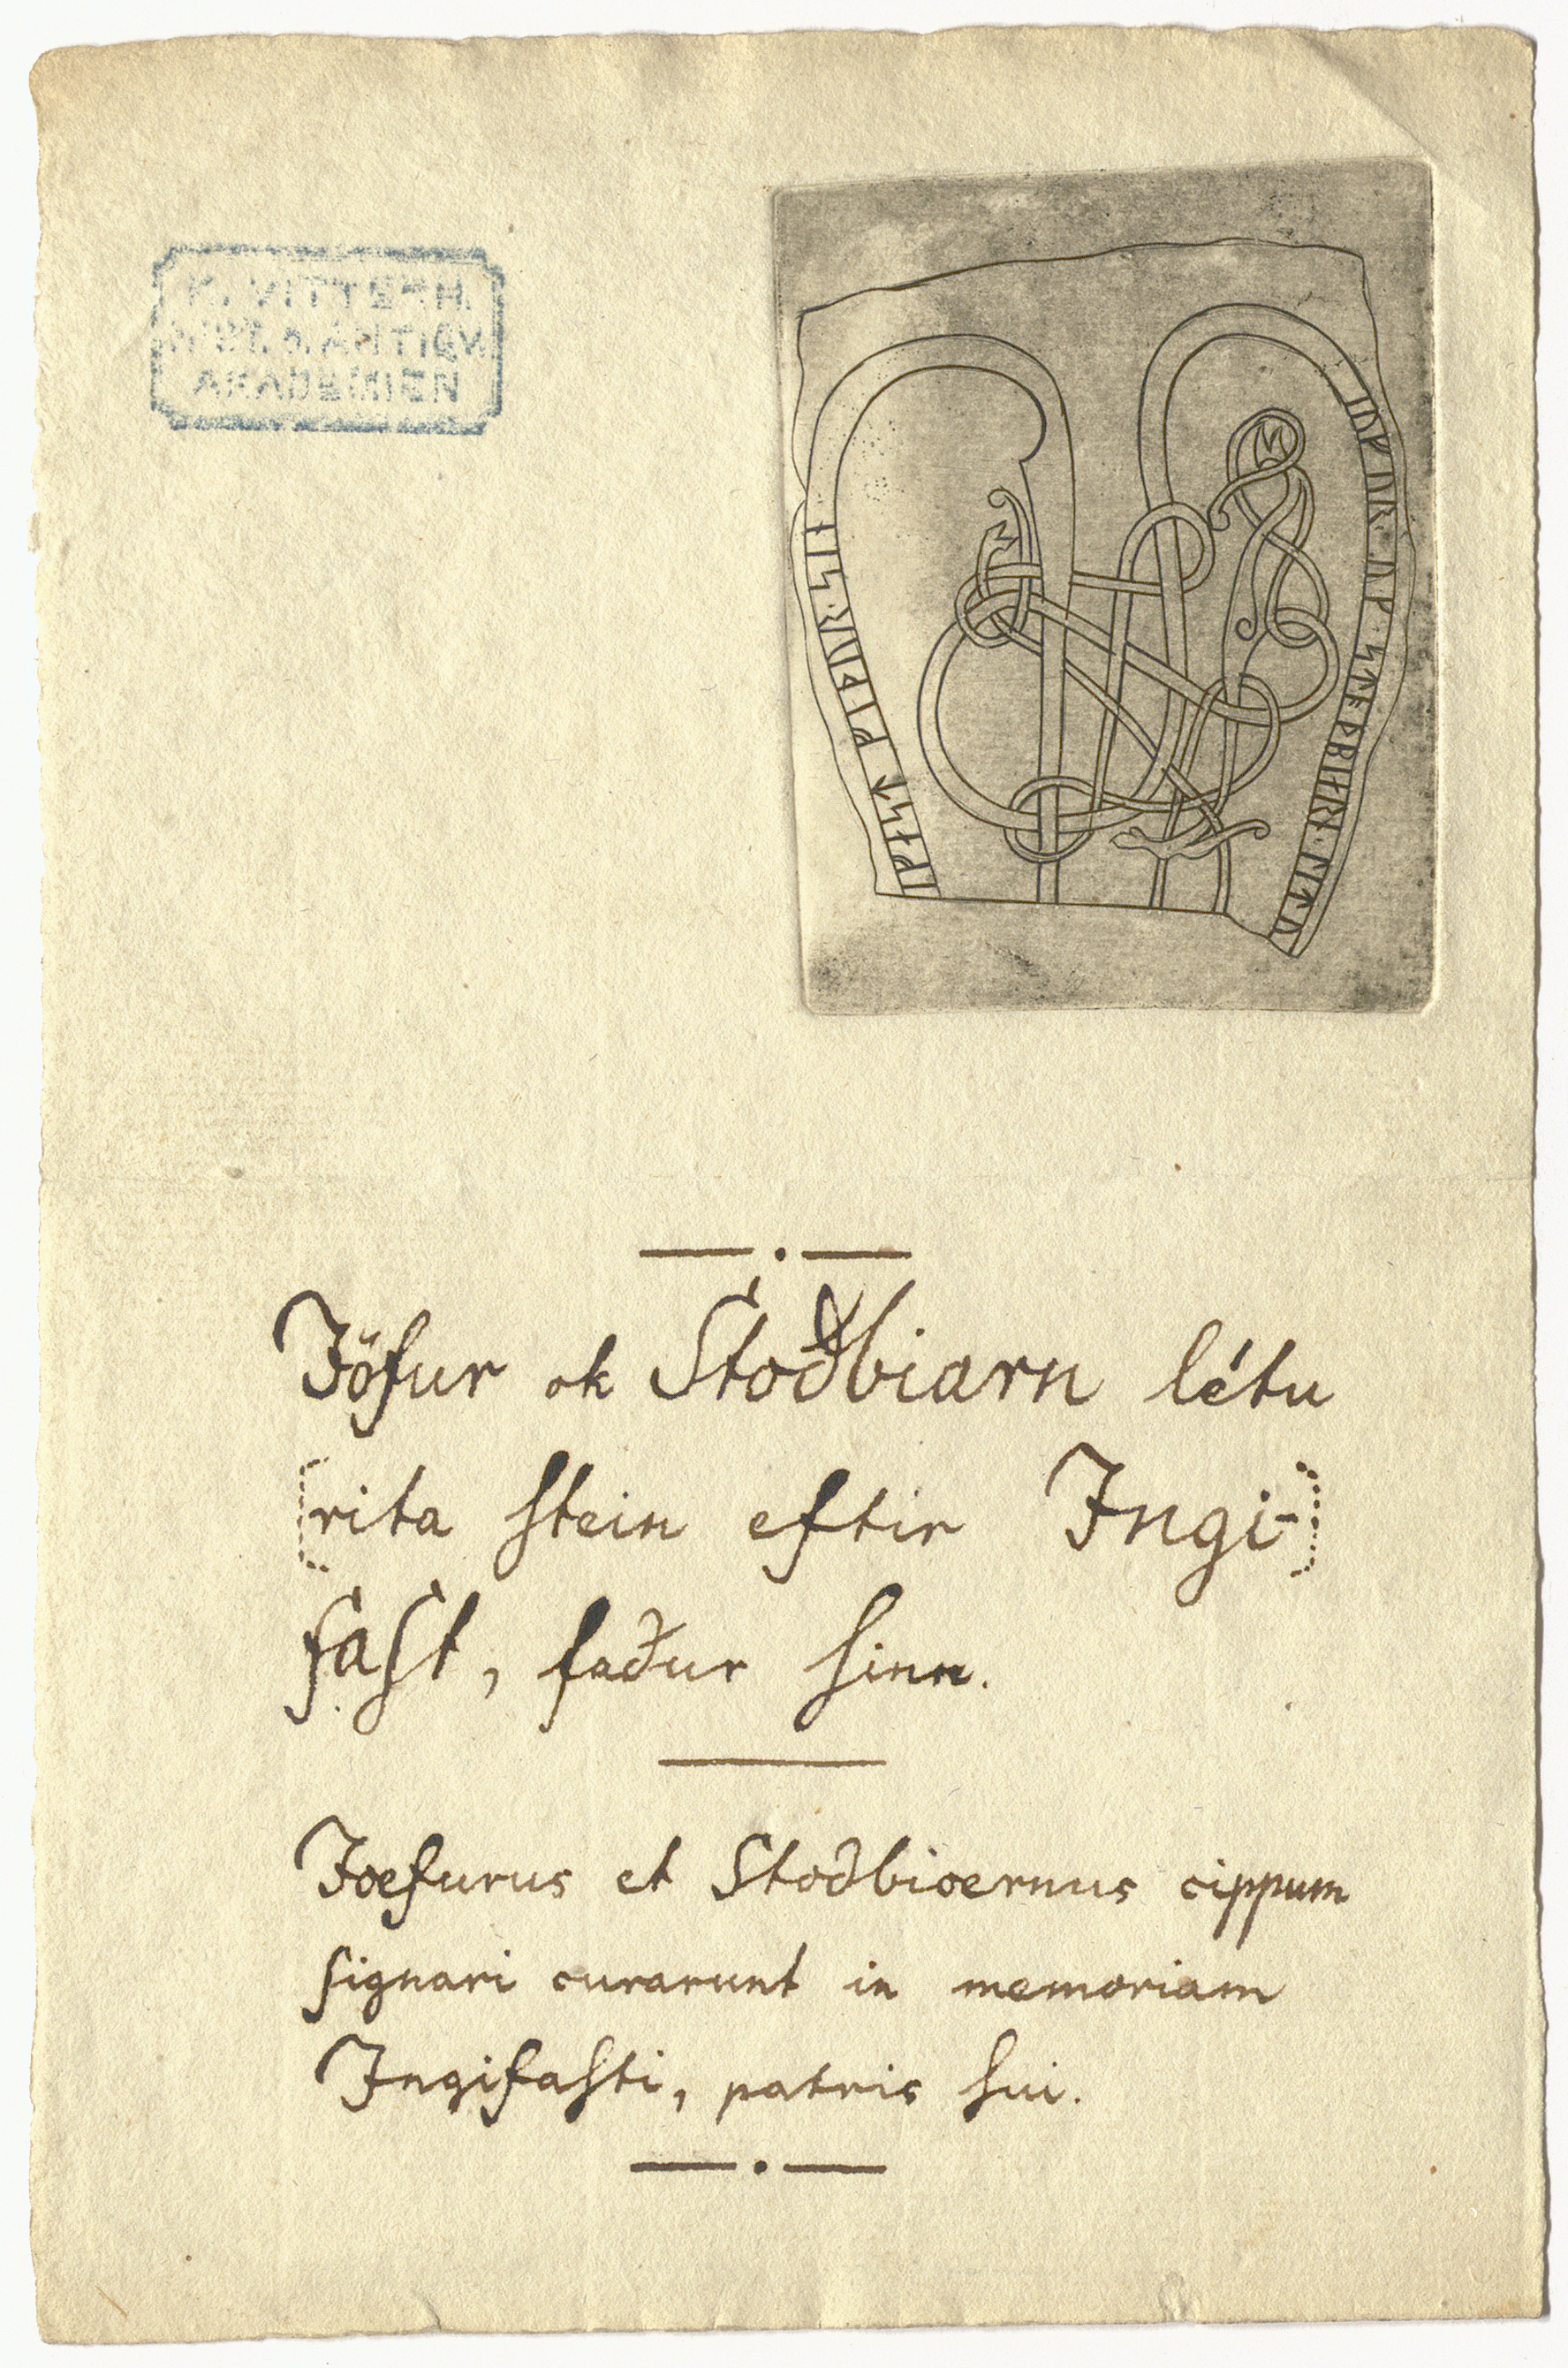 K. VITTERH.
HIST. & ANTIQV.
AKADEMIEN
Jöfur ok Stoðbiarn létu
[rita ſtein eftir Ingi-]
faſt, faður ſinn.
Joefurus et Stoðbioernus cippum
ſignari curarunt in memoriam
Ingifaſti, patris ſui.